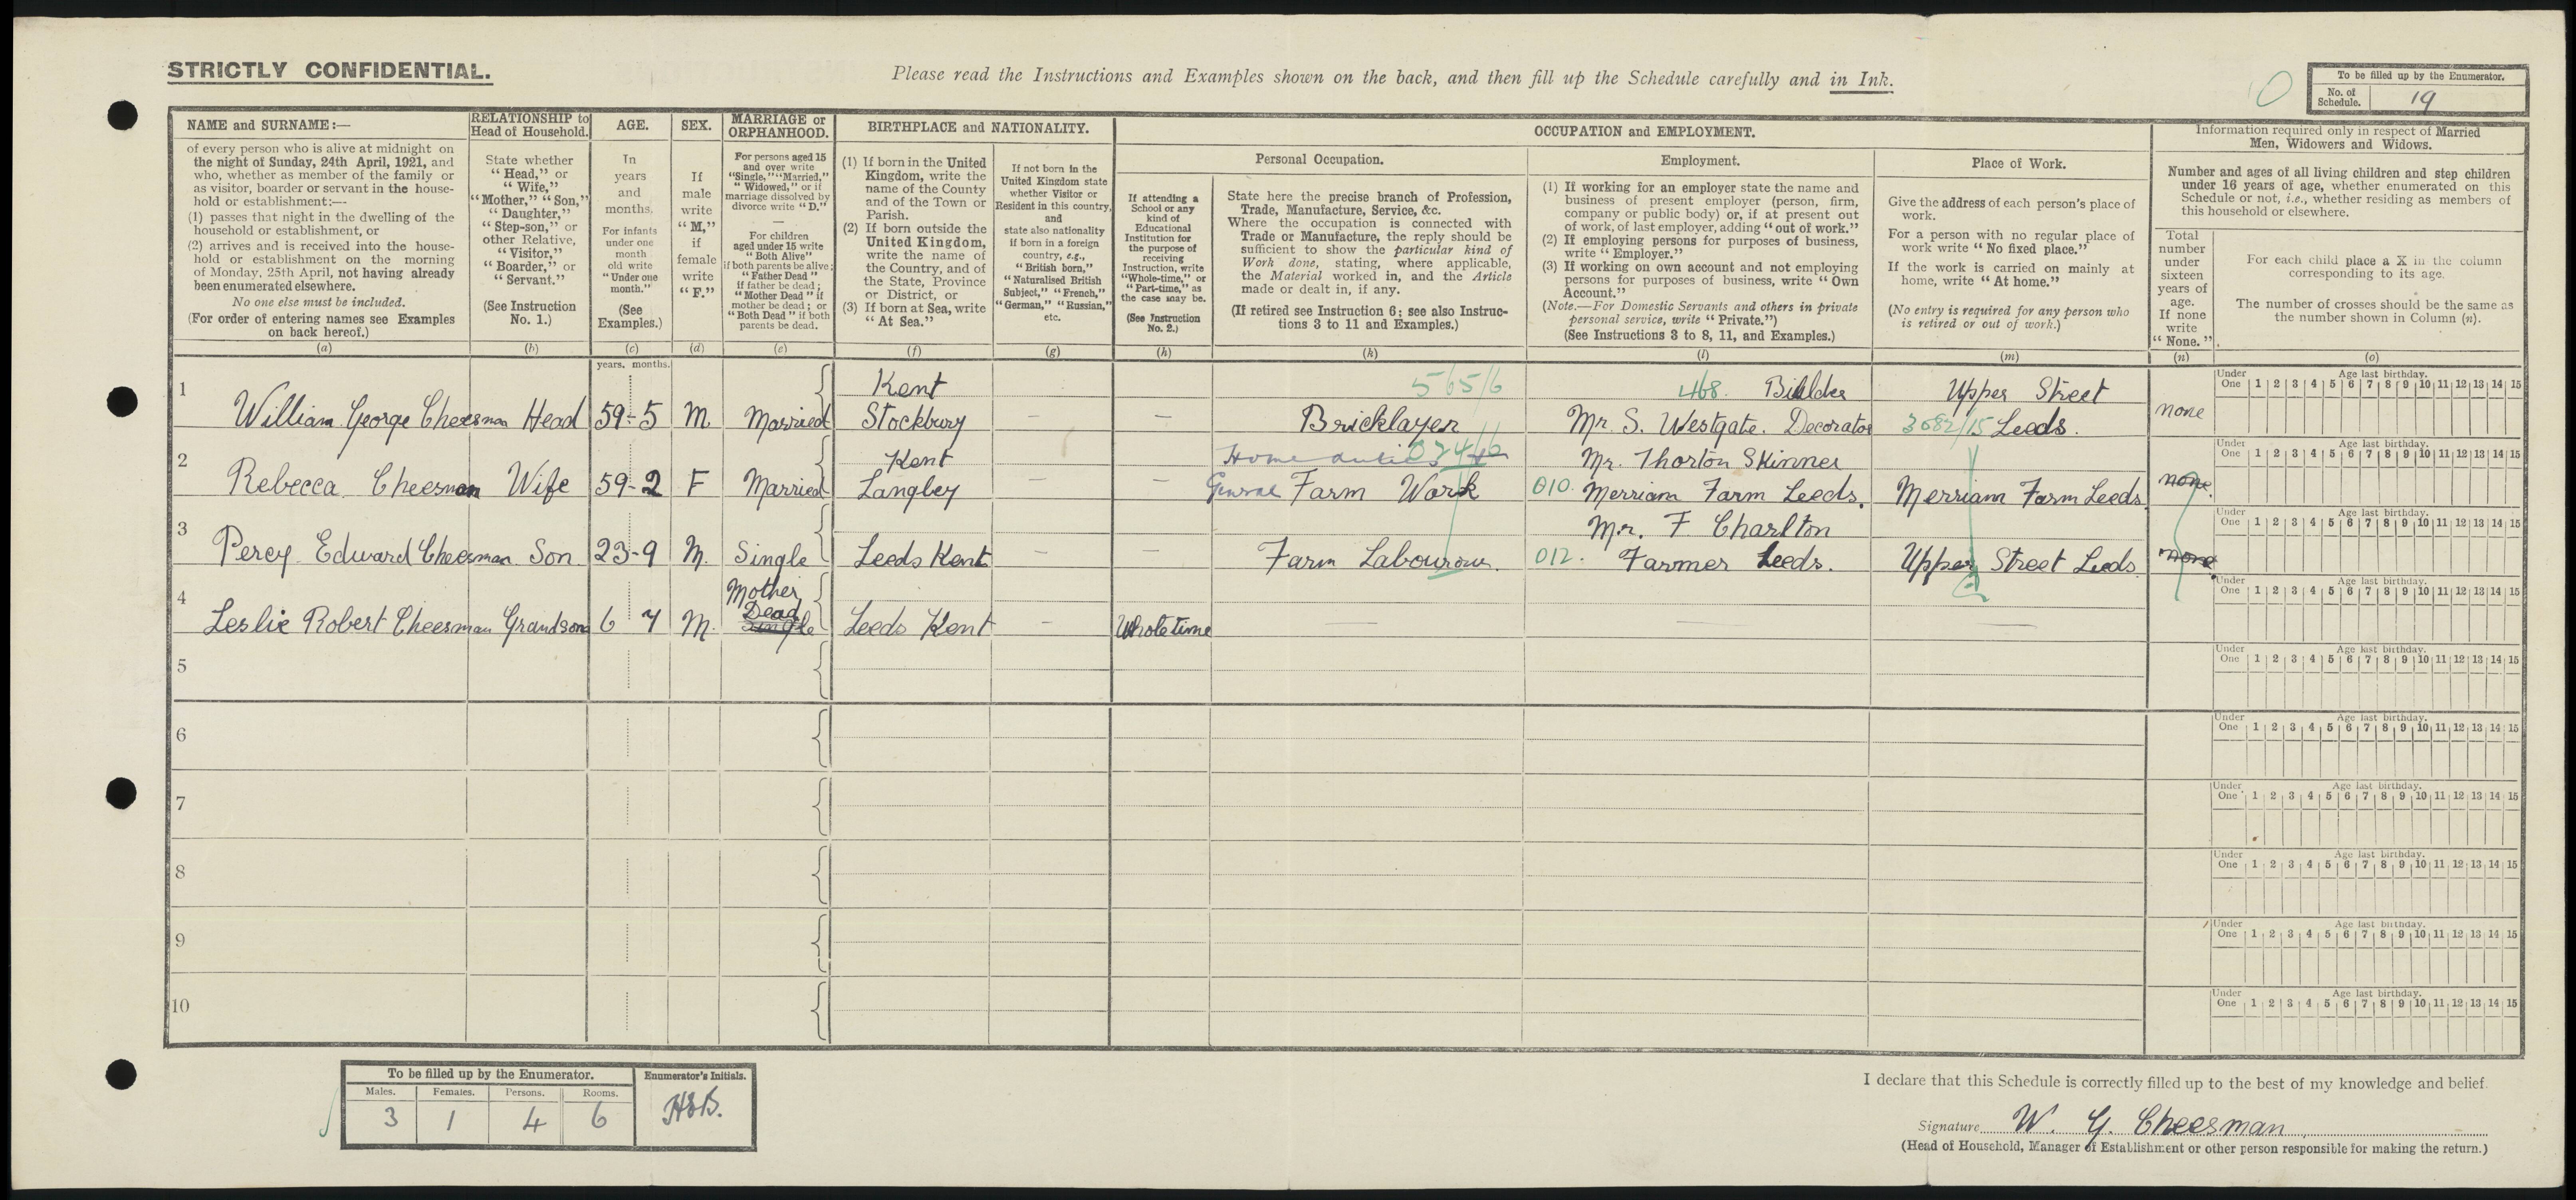 STRICTLY CONFIDENTIAL.
Please read the Instructions and Examples shown on the back, and then fill up the Schedule carefully and in Ink.
To be filled up by the Enumerator.
No. of Schedule. 19
NAME and SURNAME:—
of every person who is alive at midnight on
the night of Sunday, 24th April, 1921, and
who, whether as member of the family or
as visitor, boarder or servant in the house-
hold or establishment:—
(1) passes that night in the dwelling of the
household or establishment, or
(2) arrives and is received into the house-
hold or establishment on the morning
of Monday, 25th April, not having already
been enumerated elsewhere.
No one else must be included.
(For order of entering names see Examples
on back hereof.)
(a)
RELATIONSHIP to
Head of Household.
State whether
“Head,” or
“Wife,”
“Mother,” “Son,”
“Daughter,”
“Step-son,” or
other Relative,
“Visitor,”
“Boarder,” or
“Servant.”
(See Instruction
No. 1.)
(b)
AGE.
In
years
and
months.
For infants
under one
month
old write
“Under one
month.”
(See
Examples.)
(c)
SEX.
If
male
write
“M,”
if
female
write
“F.”
(d)
MARRIAGE or
ORPHANHOOD.
For persons aged 15
and over write
“Single,” “Married,”
“Widowed,” or if
marriage dissolved by
divorce write “D.”
—
For children
aged under 15 write
“Both Alive”
if both parents be alive;
“Father Dead”
if father be dead;
“Mother Dead” if
mother be dead; or
“Both Dead” if both
parents be dead.
(e)
BIRTHPLACE and NATIONALITY.
(1) If born in the United
Kingdom, write the
name of the County
and of the Town or
Parish.
(2) If born outside the
United Kingdom,
write the name of
the Country, and of
the State, Province
or District, or
(3) If born at Sea, write
“At Sea.”
(f)
If not born in the
United Kingdom state
whether Visitor or
Resident in this country,
and
state also nationality
if born in a foreign
country, e.g.,
“British born,”
“Naturalised British
Subject,” “French,”
“German,” “Russian,”
etc.
(g)
OCCUPATION and EMPLOYMENT.
Personal Occupation.
If attending a
School or any
kind of
Educational
Institution for
the purpose of
receiving
Instruction, write
“Whole-time,” or
“Part-time,” as
the case may be.
(See Instruction
No. 2.)
(h)
State here the precise branch of Profession,
Trade, Manufacture, Service, &c.
Where the occupation is connected with
Trade or Manufacture, the reply should be
sufficient to show the particular kind of
Work done, stating, where applicable,
the Material worked in, and the Article
made or dealt in, if any.
(If retired see Instruction 6; see also Instruc-
tions 3 to 11 and Examples.)
(k)
Employment.
(1) If working for an employer state the name and
business of present employer (person, firm,
company or public body) or, if at present out
of work, of last employer, adding “out of work.”
(2) If employing persons for purposes of business,
write “Employer.”
(3) If working on own account and not employing
persons for purposes of business, write “Own
Account.”
(Note.—For Domestic Servants and others in private
personal service, write “Private.”)
(See Instructions 3 to 8, 11, and Examples.)
(l)
Place of Work.
Give the address of each person's place of
work.
For a person with no regular place of
work write “No fixed place.”
If the work is carried on mainly at
home, write “At home.”
(No entry is required for any person who
is retired or out of work.)
(m)
Information required only in respect of Married
Men, Widowers and Widows.
Number and ages of all living children and step children
under 16 years of age, whether enumerated on this
Schedule or not, i.e., whether residing as members of
this household or elsewhere.
Total
number
under
sixteen
years of
age.
If none
write
“None.”
(n)
For each child place a X in the column
corresponding to its age.
The number of crosses should be the same as
the number shown in Column (n).
(o)
years. months.
1
Kent 565/6 468 Builder Upper Street
William George Cheesman Head 59-5 M Married Stockbury — — Bricklayer Mr. S. Westgate. Decorator 3082/15 Leeds. none
Under One Age last birthday. 1 2 3 4 5 6 7 8 9 10 11 12 13 14 15
2
Kent Home duties Mr. Thorton Skinner
Rebecca Cheesman Wife 59-2 F Married Langley — — General Farm Work 010. Merriam Farm Leeds. Merriam Farm Leeds. none.
Under One Age last birthday. 1 2 3 4 5 6 7 8 9 10 11 12 13 14 15
3
Mr. F. Charlton
Percy Edward Cheesman Son 23-9 M. Single Leeds Kent — — Farm Labourour. 012. Farmer Leeds. Upper Street Leeds. none.
Under One Age last birthday. 1 2 3 4 5 6 7 8 9 10 11 12 13 14 15
4
Mother
Dead
Leslie Robert Cheesman Grandson 6 7 M. Single Leeds Kent — Whole time — — —
Under One Age last birthday. 1 2 3 4 5 6 7 8 9 10 11 12 13 14 15
5
Under One Age last birthday. 1 2 3 4 5 6 7 8 9 10 11 12 13 14 15
6
Under One Age last birthday. 1 2 3 4 5 6 7 8 9 10 11 12 13 14 15
7
Under One Age last birthday. 1 2 3 4 5 6 7 8 9 10 11 12 13 14 15
8
Under One Age last birthday. 1 2 3 4 5 6 7 8 9 10 11 12 13 14 15
9
Under One Age last birthday. 1 2 3 4 5 6 7 8 9 10 11 12 13 14 15
10
Under One Age last birthday. 1 2 3 4 5 6 7 8 9 10 11 12 13 14 15
To be filled up by the Enumerator.
Males. Females. Persons. Rooms.
3 1 4 6
Enumerator's Initials.
HEB.
I declare that this Schedule is correctly filled up to the best of my knowledge and belief.
Signature W. G. Cheesman
(Head of Household, Manager of Establishment or other person responsible for making the return.)